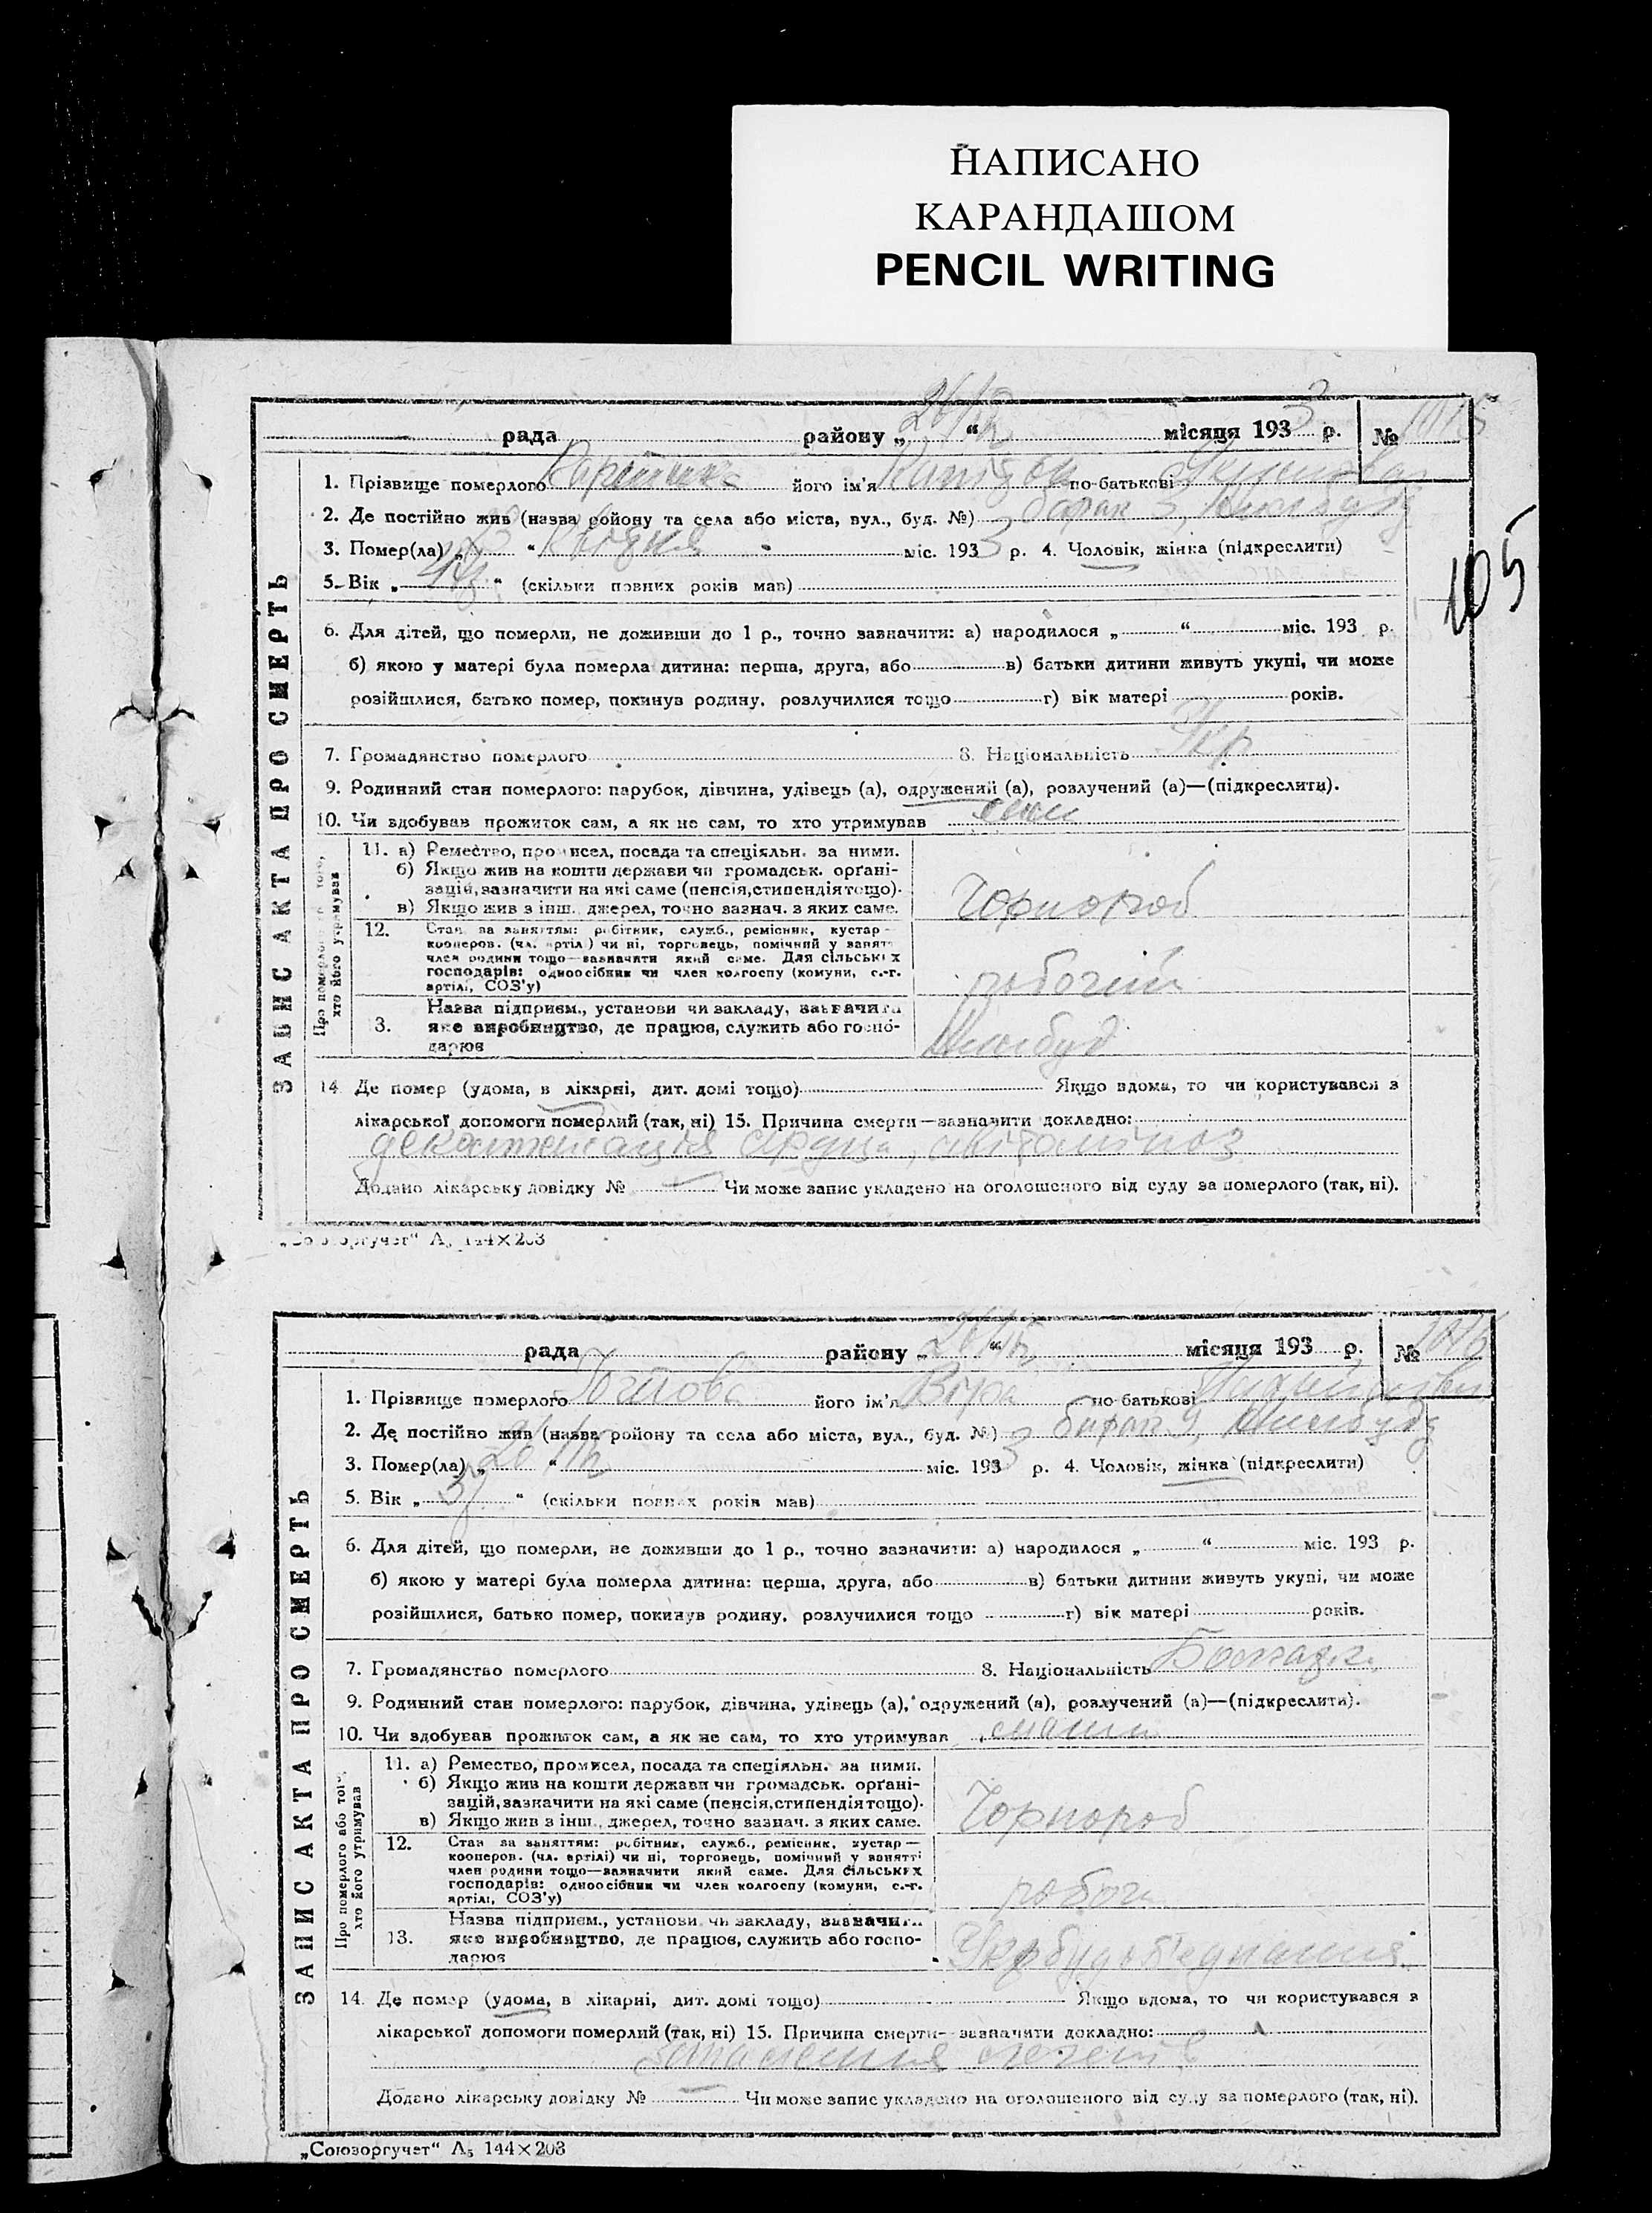 НАПИСАНО
КАРАНДАШОМ
PENCIL WRITING
105
рада району „ “ місяця 193 3 р. №
ЗАПИС АКТА ПРО СМЕРТЬ
1. Прізвище померлого його ім'я по-батькові
2. Де постійно жив (назва ройону та села або міста, вул., буд. №) барак 3,
3. Помер(ла) „ “ міс. 193 3 р. 4. Чоловік, жінка (підкреслити)
5. Вік „ “ (скільки повних років мав)
6. Для дітей, що померли, не доживши до 1 р., точно зазначити: а) народилося „ “ міс. 193 р.
б) якою у матері була померла дитина: перша, друга, або в) батьки дитини живуть укупі, чи може
розійшлися, батько помер, покинув родину, розлучилися тощо г) вік матері років.
7. Громадянство померлого 8. Національність Укр
9. Родинний стан померлого: парубок, дівчина, удівець (а), одружений (а), розлучений (а)—(підкреслити).
10. Чи здобував прожиток сам, а як не сам, то хто утримував
Про померлого або того, хто його утримував
11. а) Ремество, промисел, посада та спеціяльн. за ними.
б) Якщо жив на кошти держави чи громадськ. орґані-
зацій, зазначити на які саме (пенсія, стипендія тощо).
в) Якщо жив з інш. джерел, точно зазнач. з яких саме.
Чорнороб
12. Стан за заняттям: робітник, служб., ремісник, кустар—
кооперов. (чл. артілі) чи ні, торговець, помічний у занятті
член родини тощо—зазначити який саме. Для сільських
господарів: одноосібник чи член колгоспу (комуни, с.-г.
артілі, СОЗ'у)
робочий
13. Назва підприєм., установи чи закладу, зазначити
яке виробництво, де працює, служить або госпо-
дарює
14. Де помер (удома, в лікарні, дит. домі тощо) Якщо вдома, то чи користувався з
лікарської допомоги померлий (так, ні) 15. Причина смерти—зазначити докладно:
декомпенсація серця, авітаміноз
Додано лікарську довідку № Чи може запис укладено на оголошеного від суду за померлого (так, ні).
„Союзоргучет“ А₅ 144×203
рада району „ “ місяця 193 р. № 1046
ЗАПИС АКТА ПРО СМЕРТЬ
1. Прізвище померлого його ім'я Віра по-батькові
2. Де постійно жив (назва ройону та села або міста, вул., буд. №) барак 9,
3. Помер(ла) „ “ міс. 193 3 р. 4. Чоловік, жінка (підкреслити)
5. Вік „ “ (скільки повних років мав)
6. Для дітей, що померли, не доживши до 1 р., точно зазначити: а) народилося „ “ міс. 193 р.
б) якою у матері була померла дитина: перша, друга, або в) батьки дитини живуть укупі, чи може
розійшлися, батько помер, покинув родину, розлучилися тощо г) вік матері років.
7. Громадянство померлого 8. Національність
9. Родинний стан померлого: парубок, дівчина, удівець (а), одружений (а), розлучений (а)—(підкреслити).
10. Чи здобував прожиток сам, а як не сам, то хто утримував
Про померлого або того, хто його утримував
11. а) Ремество, промисел, посада та спеціяльн. за ними.
б) Якщо жив на кошти держави чи громадськ. орґані-
зацій, зазначити на які саме (пенсія, стипендія тощо).
в) Якщо жив з інш. джерел, точно зазнач. з яких саме.
Чорнороб
12. Стан за заняттям: робітник, служб., ремісник, кустар—
кооперов. (чл. артілі) чи ні, торговець, помічний у занятті
член родини тощо—зазначити який саме. Для сільських
господарів: одноосібник чи член колгоспу (комуни, с.-г.
артілі, СОЗ'у)
робоч
13. Назва підприєм., установи чи закладу, зазначити
яке виробництво, де працює, служить або госпо-
дарює
Укрбудоб'єднання
14. Де помер (удома, в лікарні, дит. домі тощо) Якщо вдома, то чи користувався з
лікарської допомоги померлий (так, ні) 15. Причина смерти—зазначити докладно:
Запалення легенів
Додано лікарську довідку № Чи може запис укладено на оголошеного від суду за померлого (так, ні).
„Союзоргучет“ А₅ 144×203